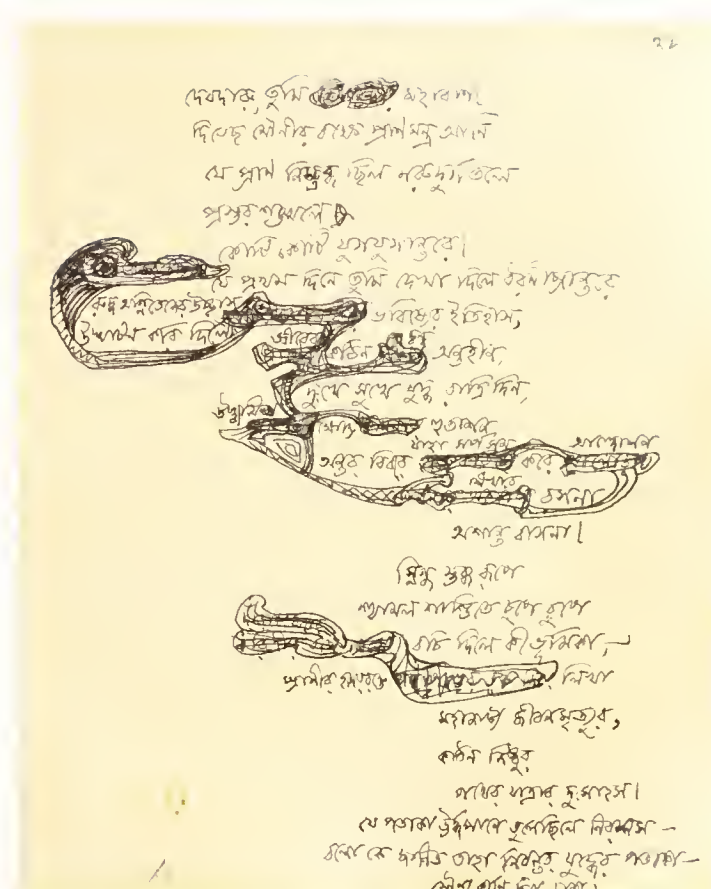 ২৮
দেবদারু, তুমি মহাবাণী
দিয়েছ মৌনীর বক্ষে প্রাণমন্ত্র আনি
যে প্রাণ নিস্তব্ধ ছিল মরুদুর্গতলে
প্রস্তরশৃঙ্খলে
কোটি কোটি যুগযুগান্তরে।
যে প্রথম দিনে তুমি দেখা দিলে প্রান্তরে
রুদ্ধ অগ্নিতেজের উচ্ছ্বাস
উদ্ঘাটন করি দিলে ভবিষ্যের ইতিহাস,
জীবের কঠিন অন্তহীন,
দুঃখে সুখে যুদ্ধ রাত্রি দিন,
হুতাশন
অন্তর বিবরে যাহা সর্পসম করে আন্দোলন
শিখার রসনা
অশান্ত বাসনা।
স্নিগ্ধ স্তব্ধ রূপে
শ্যামল শান্তিতে চুপে চুপে
রচি দিলে কী ভূমিকা,—
প্রাণীর লিখা
মহানাট্য জীবনমৃত্যুর,
কঠিন নিষ্ঠুর
পথের যাত্রার দুঃসাহস।
যে পতাকা ঊর্দ্ধপানে তুলেছিলে নিরলস—
বলো কে জানিত তাহা নিরন্তর যুদ্ধের পতাকা—